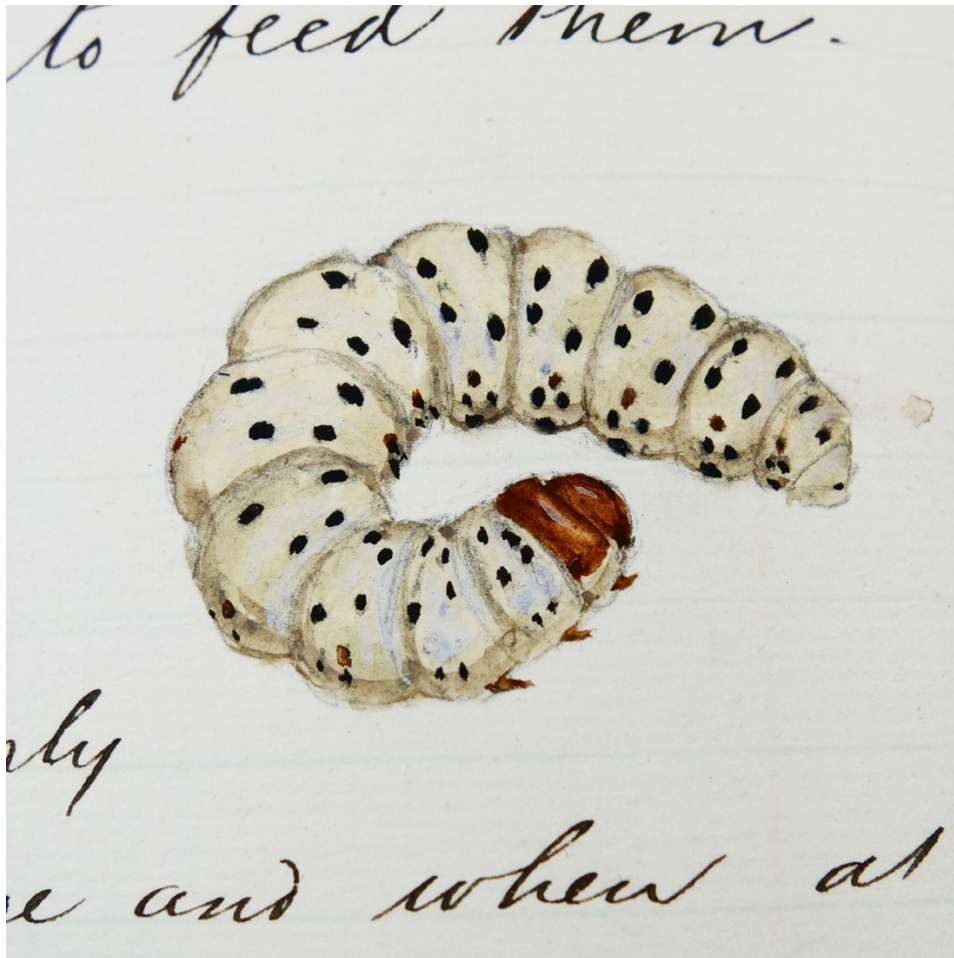 to feed them.
and when at